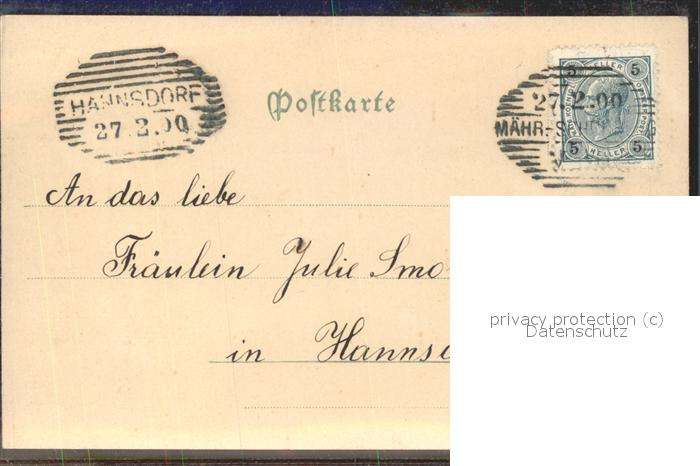 HANNSDORF
27.2.00
Postkarte
5 HELLER 5
27.2.00
MÄHR-S
5 HELLER 5
An das liebe
Fräulein Julie Smo
in Hanns
privacy protection (c)
Datenschutz